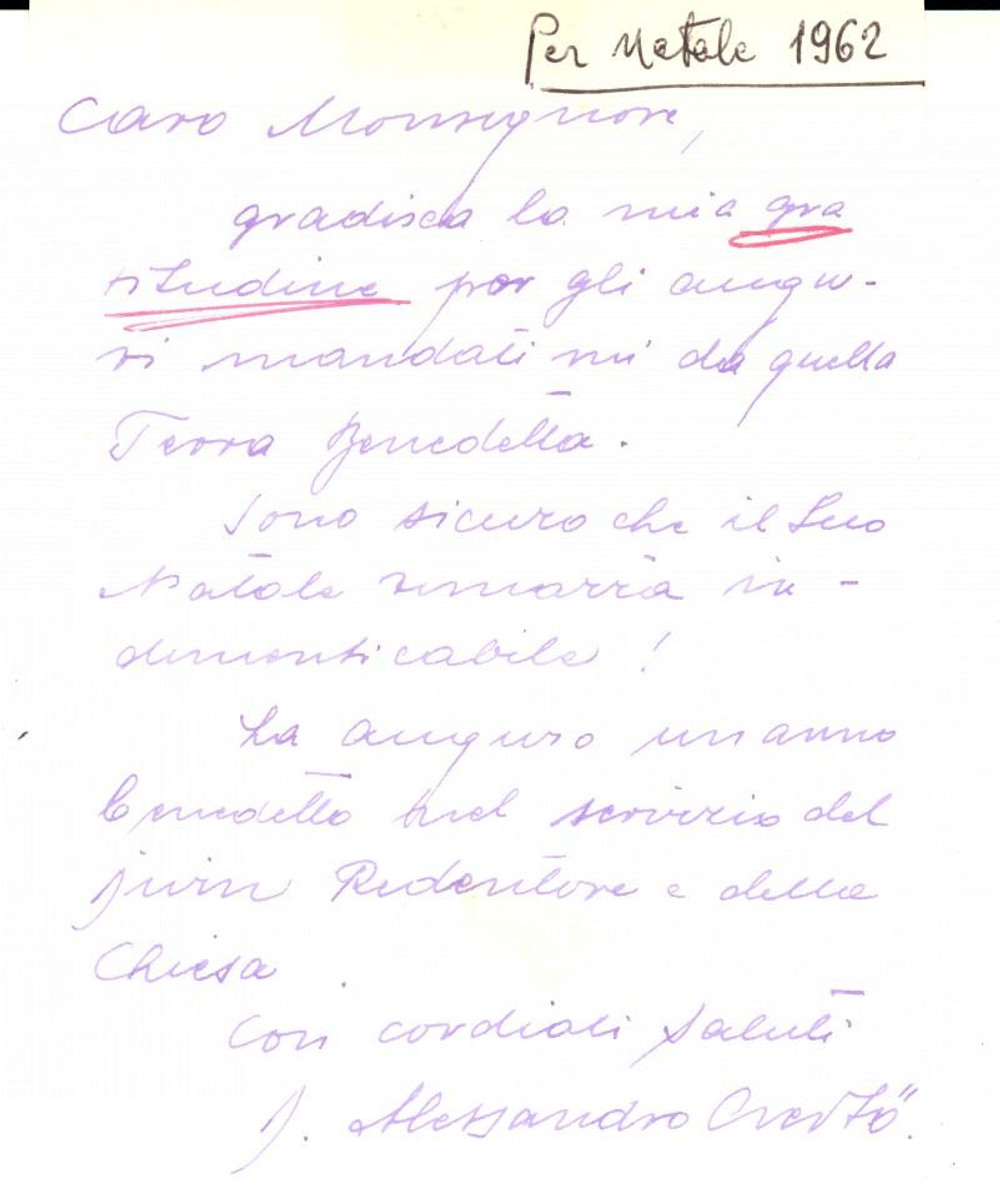 Per Natale 1962
Caro Monsignore,
gradisca la mia gra
titudine per gli augu-
ri mandati mi da quella
Terra Benedetta.
Sono sicuro che il Suo
Natale rimarrà in-
dimenticabile!
La auguro un anno
benedetto nel servizio del
Redentore e della
Chiesa.
Con cordiali saluti
J. Alessandro